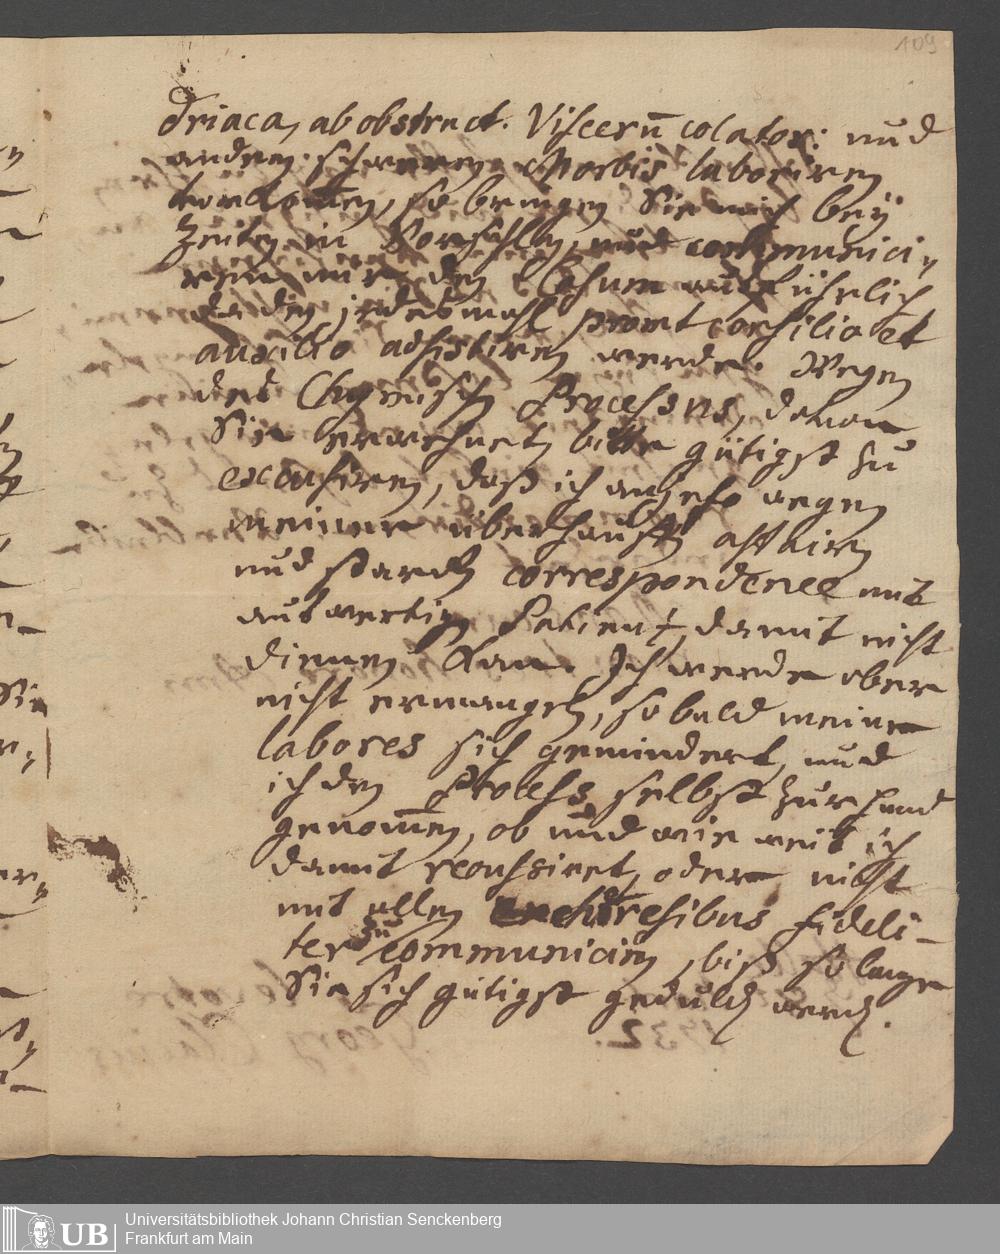 109
driaca, ab obstruct. Viscerū colator: und
andern schweren Morbis laboriren
vorkom̅en, so bringen Sie mich beÿ
Zeiten in Vorschlag, und communici-
ren mir den Casum ausführlich
da den jedesmahl promt consilio et
auxilio adsistiren werde. Wegen
des Chymischen Processus, davon
Sie erwehnet, bitte gütigst zu
excusiren, daß ich anjezo wegen
meiner überhaufften affairen
und starcken correspondence mit
auswertigen Patienten, damit nicht
dienen kan. Ich werde aber
nicht ermangeln, so bald meine
labores sich gemindert, und
ich den Process selbst zur hand
genom̅en, ob und wie weit ich
damit reoussiret, oder nicht
mit allen Encheiresibus fideli-
ter zu communiciren, biß so lange
Sie sich gütigst gedulden werden.
UB
Universitätsbibliothek Johann Christian Senckenberg
Frankfurt am Main